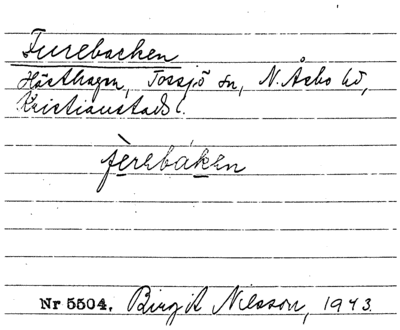 Furebacken
Hästhagen, Tossjö sn, N. Åsbo hd,
Kristianstads l.
fèrebák̲en
Nr 5504. Birgit Nilsson, 1943.